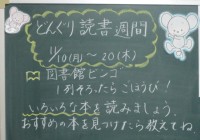 どんぐり読書週間
11/10(月)〜20(木)
図書館ビンゴ
1列そろったらごほうび!
いろいろな本を読みましょう。
おすすめの本を見つけたら教えてね